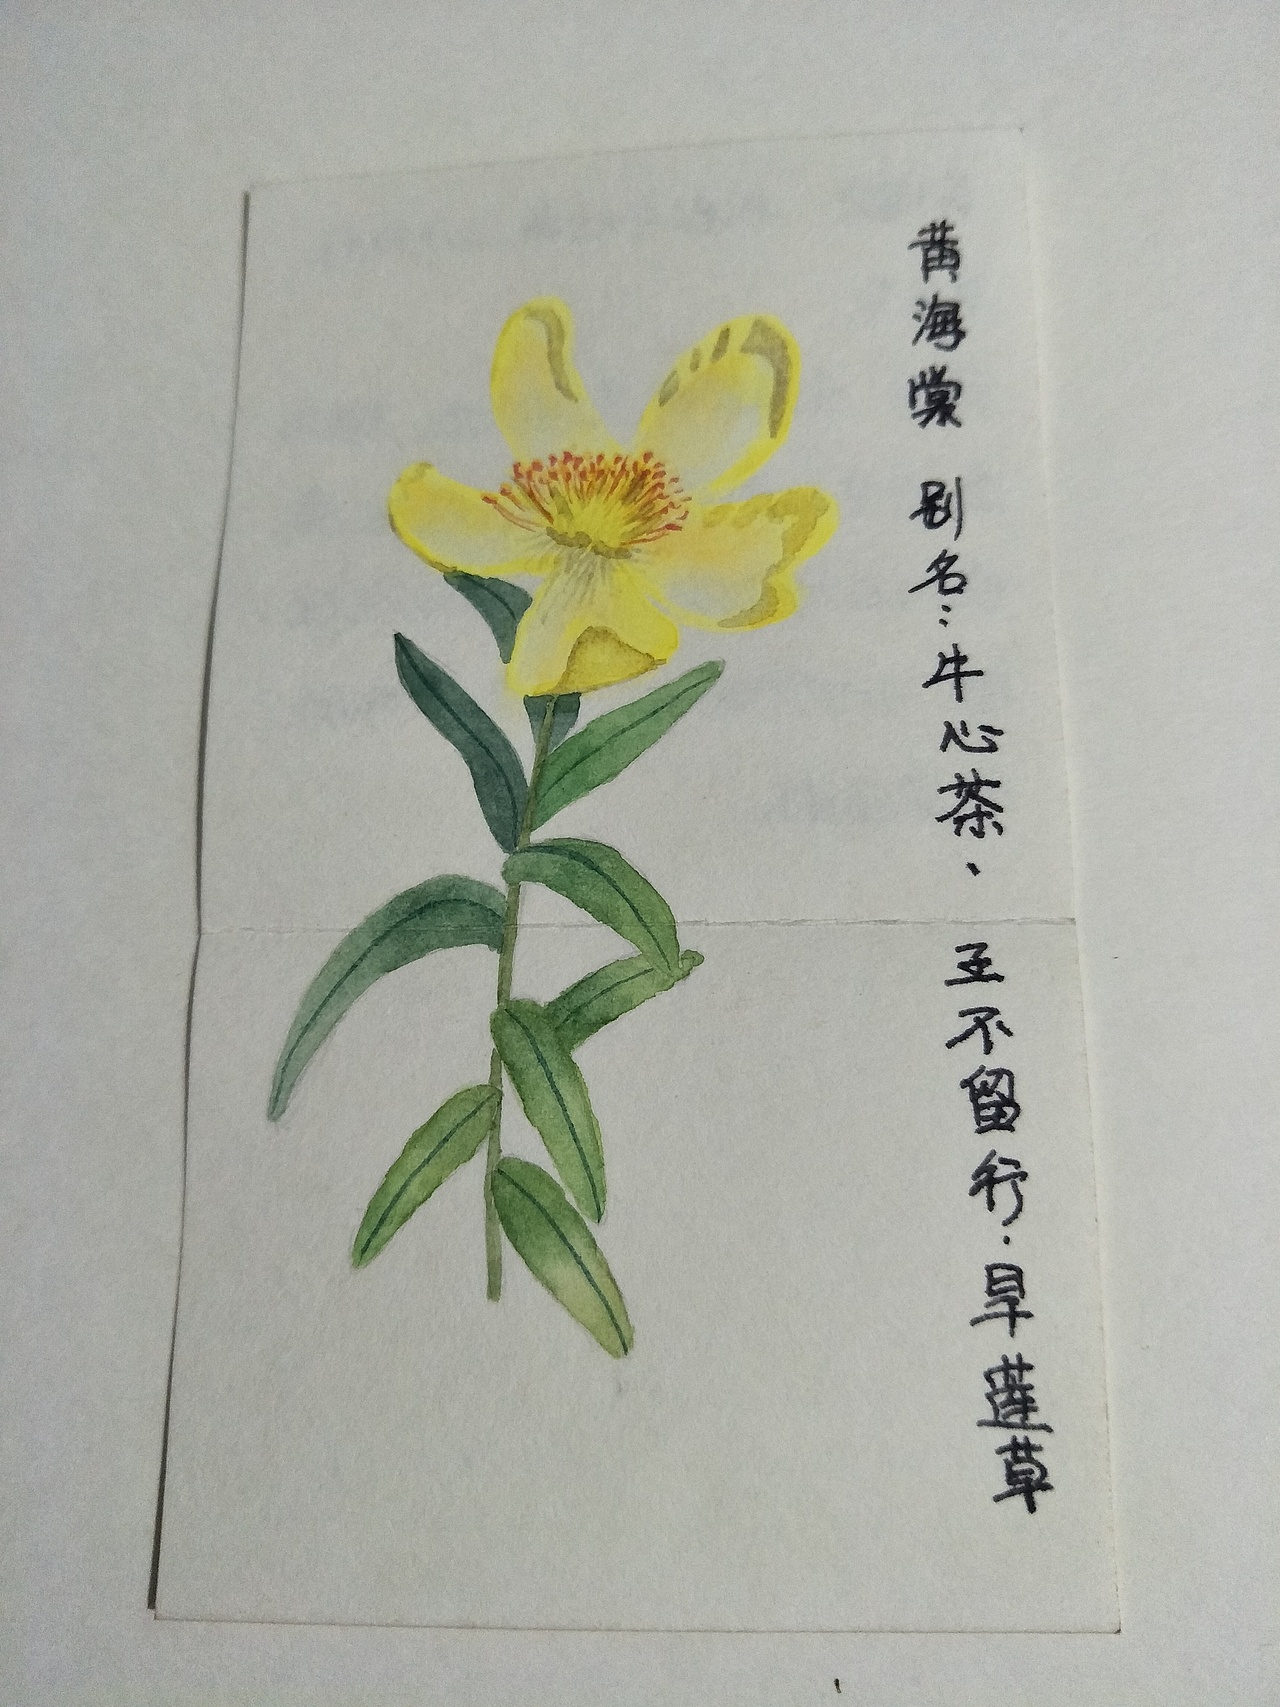 黄海棠 别名：牛心茶、王不留行.旱莲草